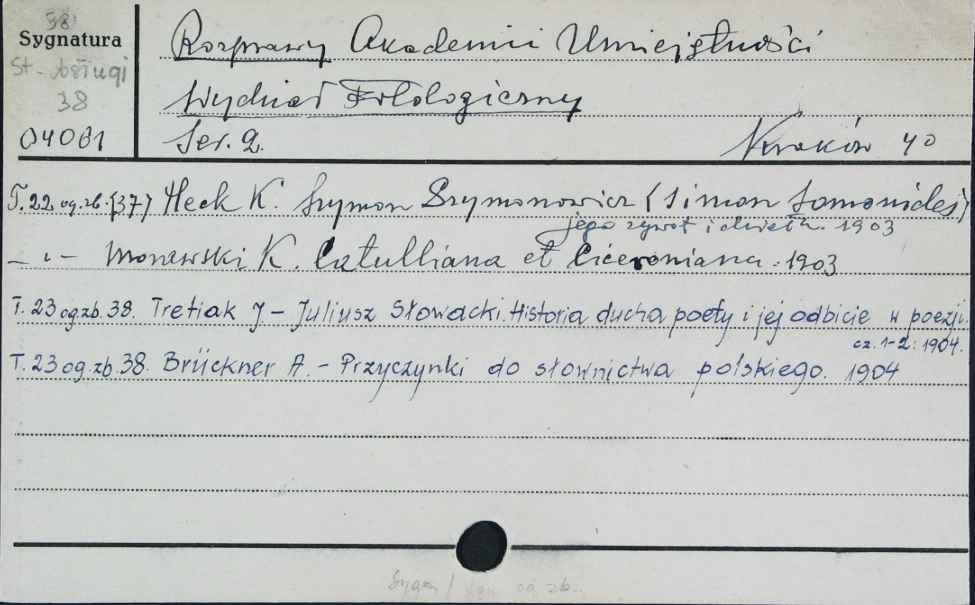 98
Sygnatura
38
04061
Rozprawy Akademii Umiejętności
Wydział Filologiczny
Ser. 2.
Kraków 40
T. 22 og. zb. (37) Heck K. Szymon Szymonowicz (Simon Simonides)
jego żywot i dzieła. 1903
– „ – Morawski K. Catulliana et Ciceroniana. 1903
T. 23 og zb. 38. Tretiak J – Juliusz Słowacki. Historia ducha poety i jej odbicie w poezji.
cz. 1-2: 1904.
T. 23 og. zb. 38. Brückner A. – Przyczynki do słownictwa polskiego. 1904
og zb.